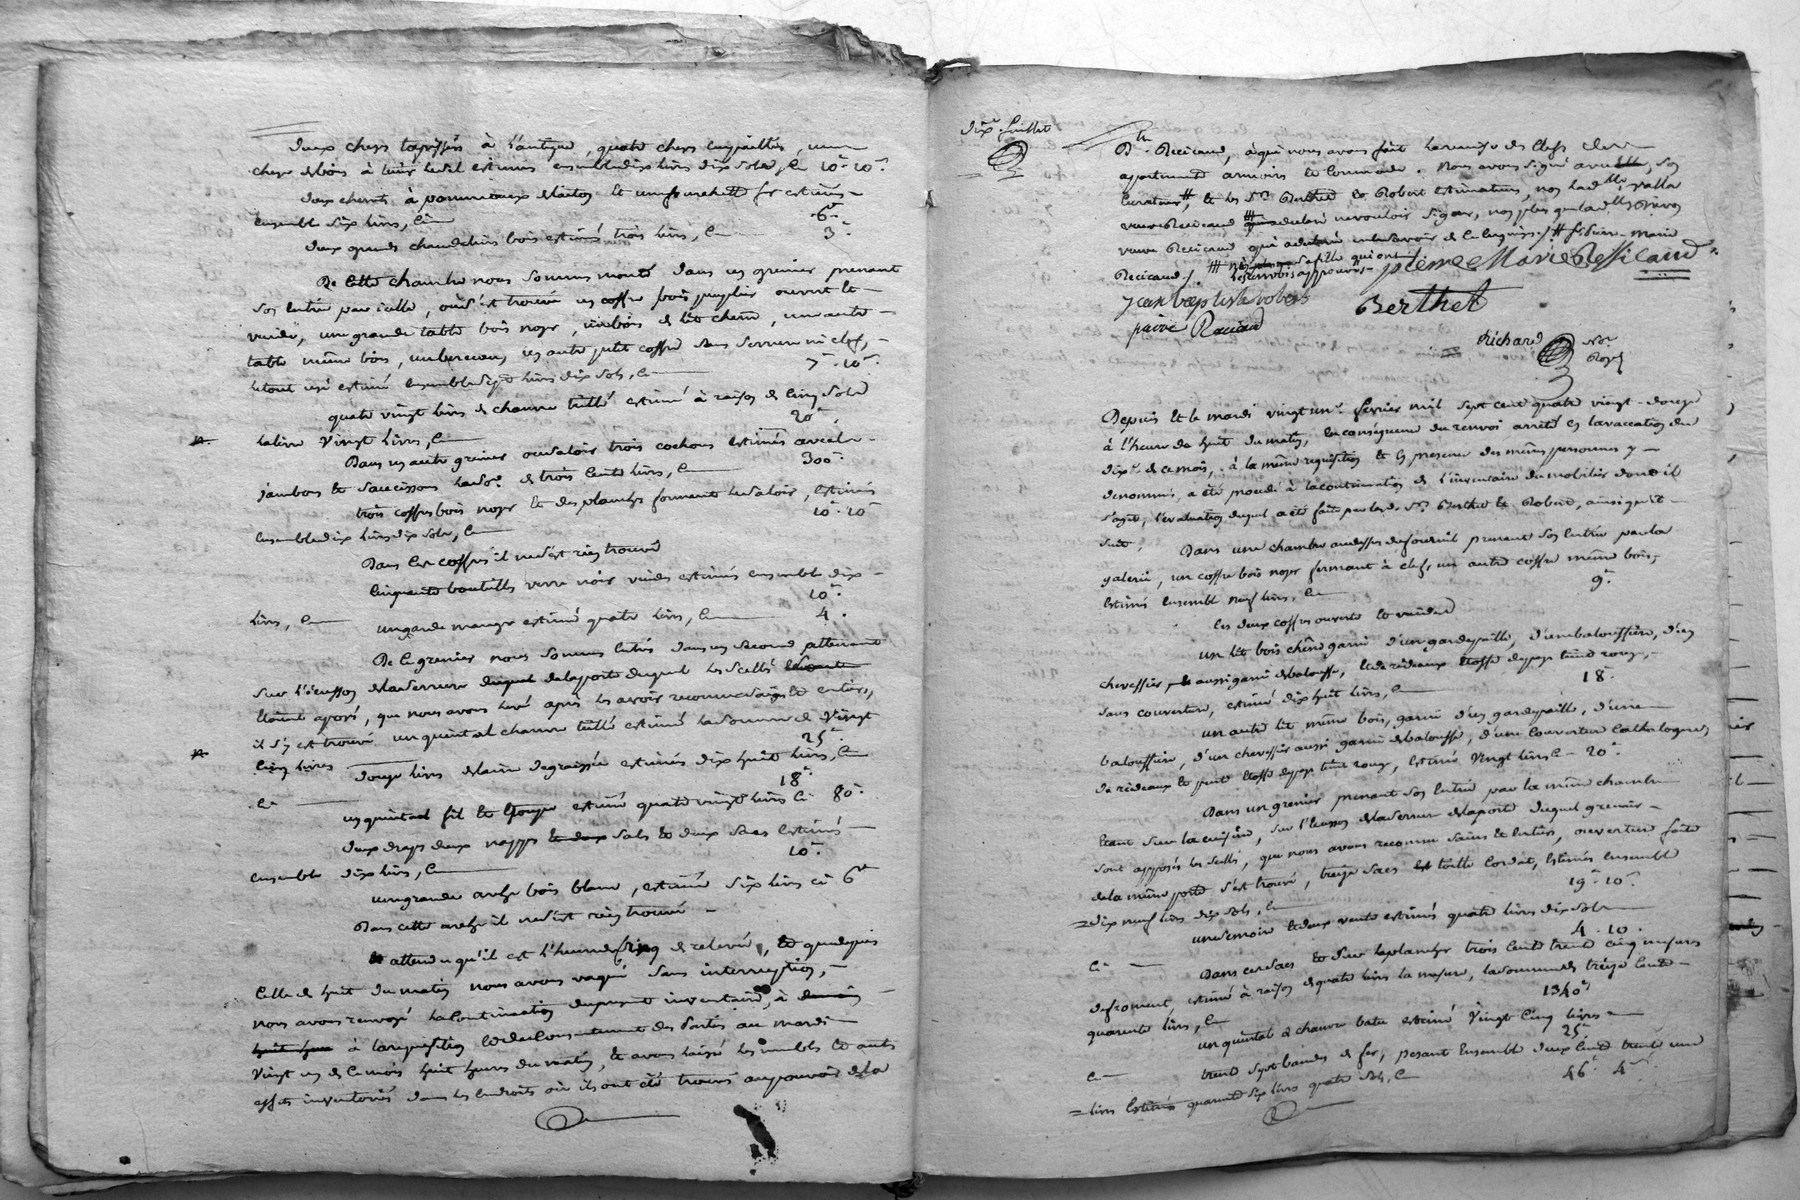 deux chezes tapissées à l'antique, quatre chezes empaillées, une
cheze de bois à tenir le sel estimés ensemble dix livres dix sols, Cy 10# 10s
deux chenets à pommeaux de laiton et un fer estimés
ensemble six livres, Cy 6#
deux grands chandeliers bois estimé trois livres, Cy 3#
De cette chambre nous sommes monté dans un grenier prenant
son entrée par icelle, où s'est trouvé un coffre bois peuplier ouvert et
vuide, une grande table bois noyer, un bois de lit chene, une autre
table même bois, un berceau, un autre petit coffre sans serrure ni clef,
le tout usé estimé ensemble sept livres dix sols, Cy 7# 10s
quatre vingt livres de chanvre teillé estimé à raison de cinq sols
la livre vingt livres, Cy 20#
Dans un autre grenier ou saloir trois cochons estimés avec les
jambons et saucissons la so.e de trois cents livres, Cy 300#
trois coffres bois noyer et des planches formant le saloir, estimés
ensemble dix livres dix sols, Cy 10# 10s
Dans les coffres il ne s'est rien trouvé
cinquante bouteilles verre noir vuides estimés ensemble dix
livres, Cy 10#
un garde manger estimé quatre livres, Cy 4#
De ce grenier nous sommes entrés dans un second attenant
sur l'écusson de la serrure de la porte duquel les scellés
étoient aposé, que nous avons levé après les avoir reconnu sains et entiers,
il s'y est trouvé un quintal chanvre teillé estimé la somme de vingt
cinq livres 25#
douze livres de laine degraissée estimés dix huit livres, Cy
Cy 18#
un quintal fil et estimé quatre vingt livres Cy 80#
deux draps deux nappes et deux sacs estimés
ensemble dix livres, Cy 10#
une grande arche bois blanc, estimée six livres ci 6#
Dans cette arche il ne s'est rien trouvé
attendu qu'il est l'heure de cinq de relevée, et que depuis
celle de huit du matin nous avons vaqué sans interruption,
nous avons renvoyé la continuation du present inventaire, à demain
huit heures à la requisition et du consentement des parties au mardi
vingt un de ce mois huit heures du matin, et avons laissé les meubles et auts
effets inventoriés dans les endroits où ils ont été trouvés au pouvoir de la
dixe. feuillet
D.lle Recicaud, à qui nous avons fait la remise des clefs de
apartement armoire et commode. Nous avons signé avec son
curateur, et les Srs Berthet et Robert estimateurs, non lad.
veuve Recicaud declaré ne vouloir signer, non plus que lad.lle
veuve Recicaud qui a declaré ne le savoir de ce enquises./. # fs Pierre marie
Recicaud./. ### sa fille qui ont
les renvois approuvés pierre Marie Ressicaud
jean baptiste robert Berthet
Richard Nre
Royal
Depuis et le mardi vingt un.e fevrier mil sept cent quatre vingt douze
à l'heure de huit du matin, en conséquence du renvoi arrêté en la vaccation du
dixe. de ce mois, à la même requisition et en presence des mêmes personnes y
denommés, a été procedé à la continuation de l'inventaire du mobilier dont il
s'agit, l'evaluation duquel a été faite par lesd. Srs Berthet et Robert, ainsi qu'il
suit,
Dans une chambre au dessus du fournil prenant son entrée par la
galerie, un coffre bois noyer fermant à clef, un autre coffre même bois,
estimés ensemble neuf livres, Cy 9#
Ces deux coffres ouverts et vuides
un lit bois chêne garni d'un gardepaille, d'une baloussiere, d'un
chevessier aussi garni de balousse, et de rideaux etoffe du pays teint rouge,
sans couverture, estimé dix huit livres, Cy 18#
un autre lit même bois, garni d'un gardepaille, d'une
baloussiere, d'un chevessier aussi garni de balousse, d'une couverture Catalogne
de rideaux et pente etoffe du pays teint rouge, estimé vingt livres Cy 20#
Dans un grenier prenant son entrée par la même chambre
etant sur la cuisine, sur l'ecusson de la serrure de la porte duquel grenier
sont apposés les scellés, que nous avons reconnu sains et entiers, ouverture faite
de la même porte s'est trouvé, treize sacs toille cordat, estimés ensemble
dix neuf livres dix sols, Cy 19# 10s
une semoire et deux vents estimés quatre livres dix sols
Ci 4# 10s
Dans ces sacs et sur le plancher trois cents trente cinq mesures
de froment, estimé à raison de quatre livres la mesure, la somme de treize cents
quarante livres, Cy 1340#
un quintal de chanvre batu estimé vingt cinq livres
Cy 25#
trente sept bandes de fer, pesant ensemble deux cents trente une
livres estimés quarante six livres quatre sols, Cy 46# 4s